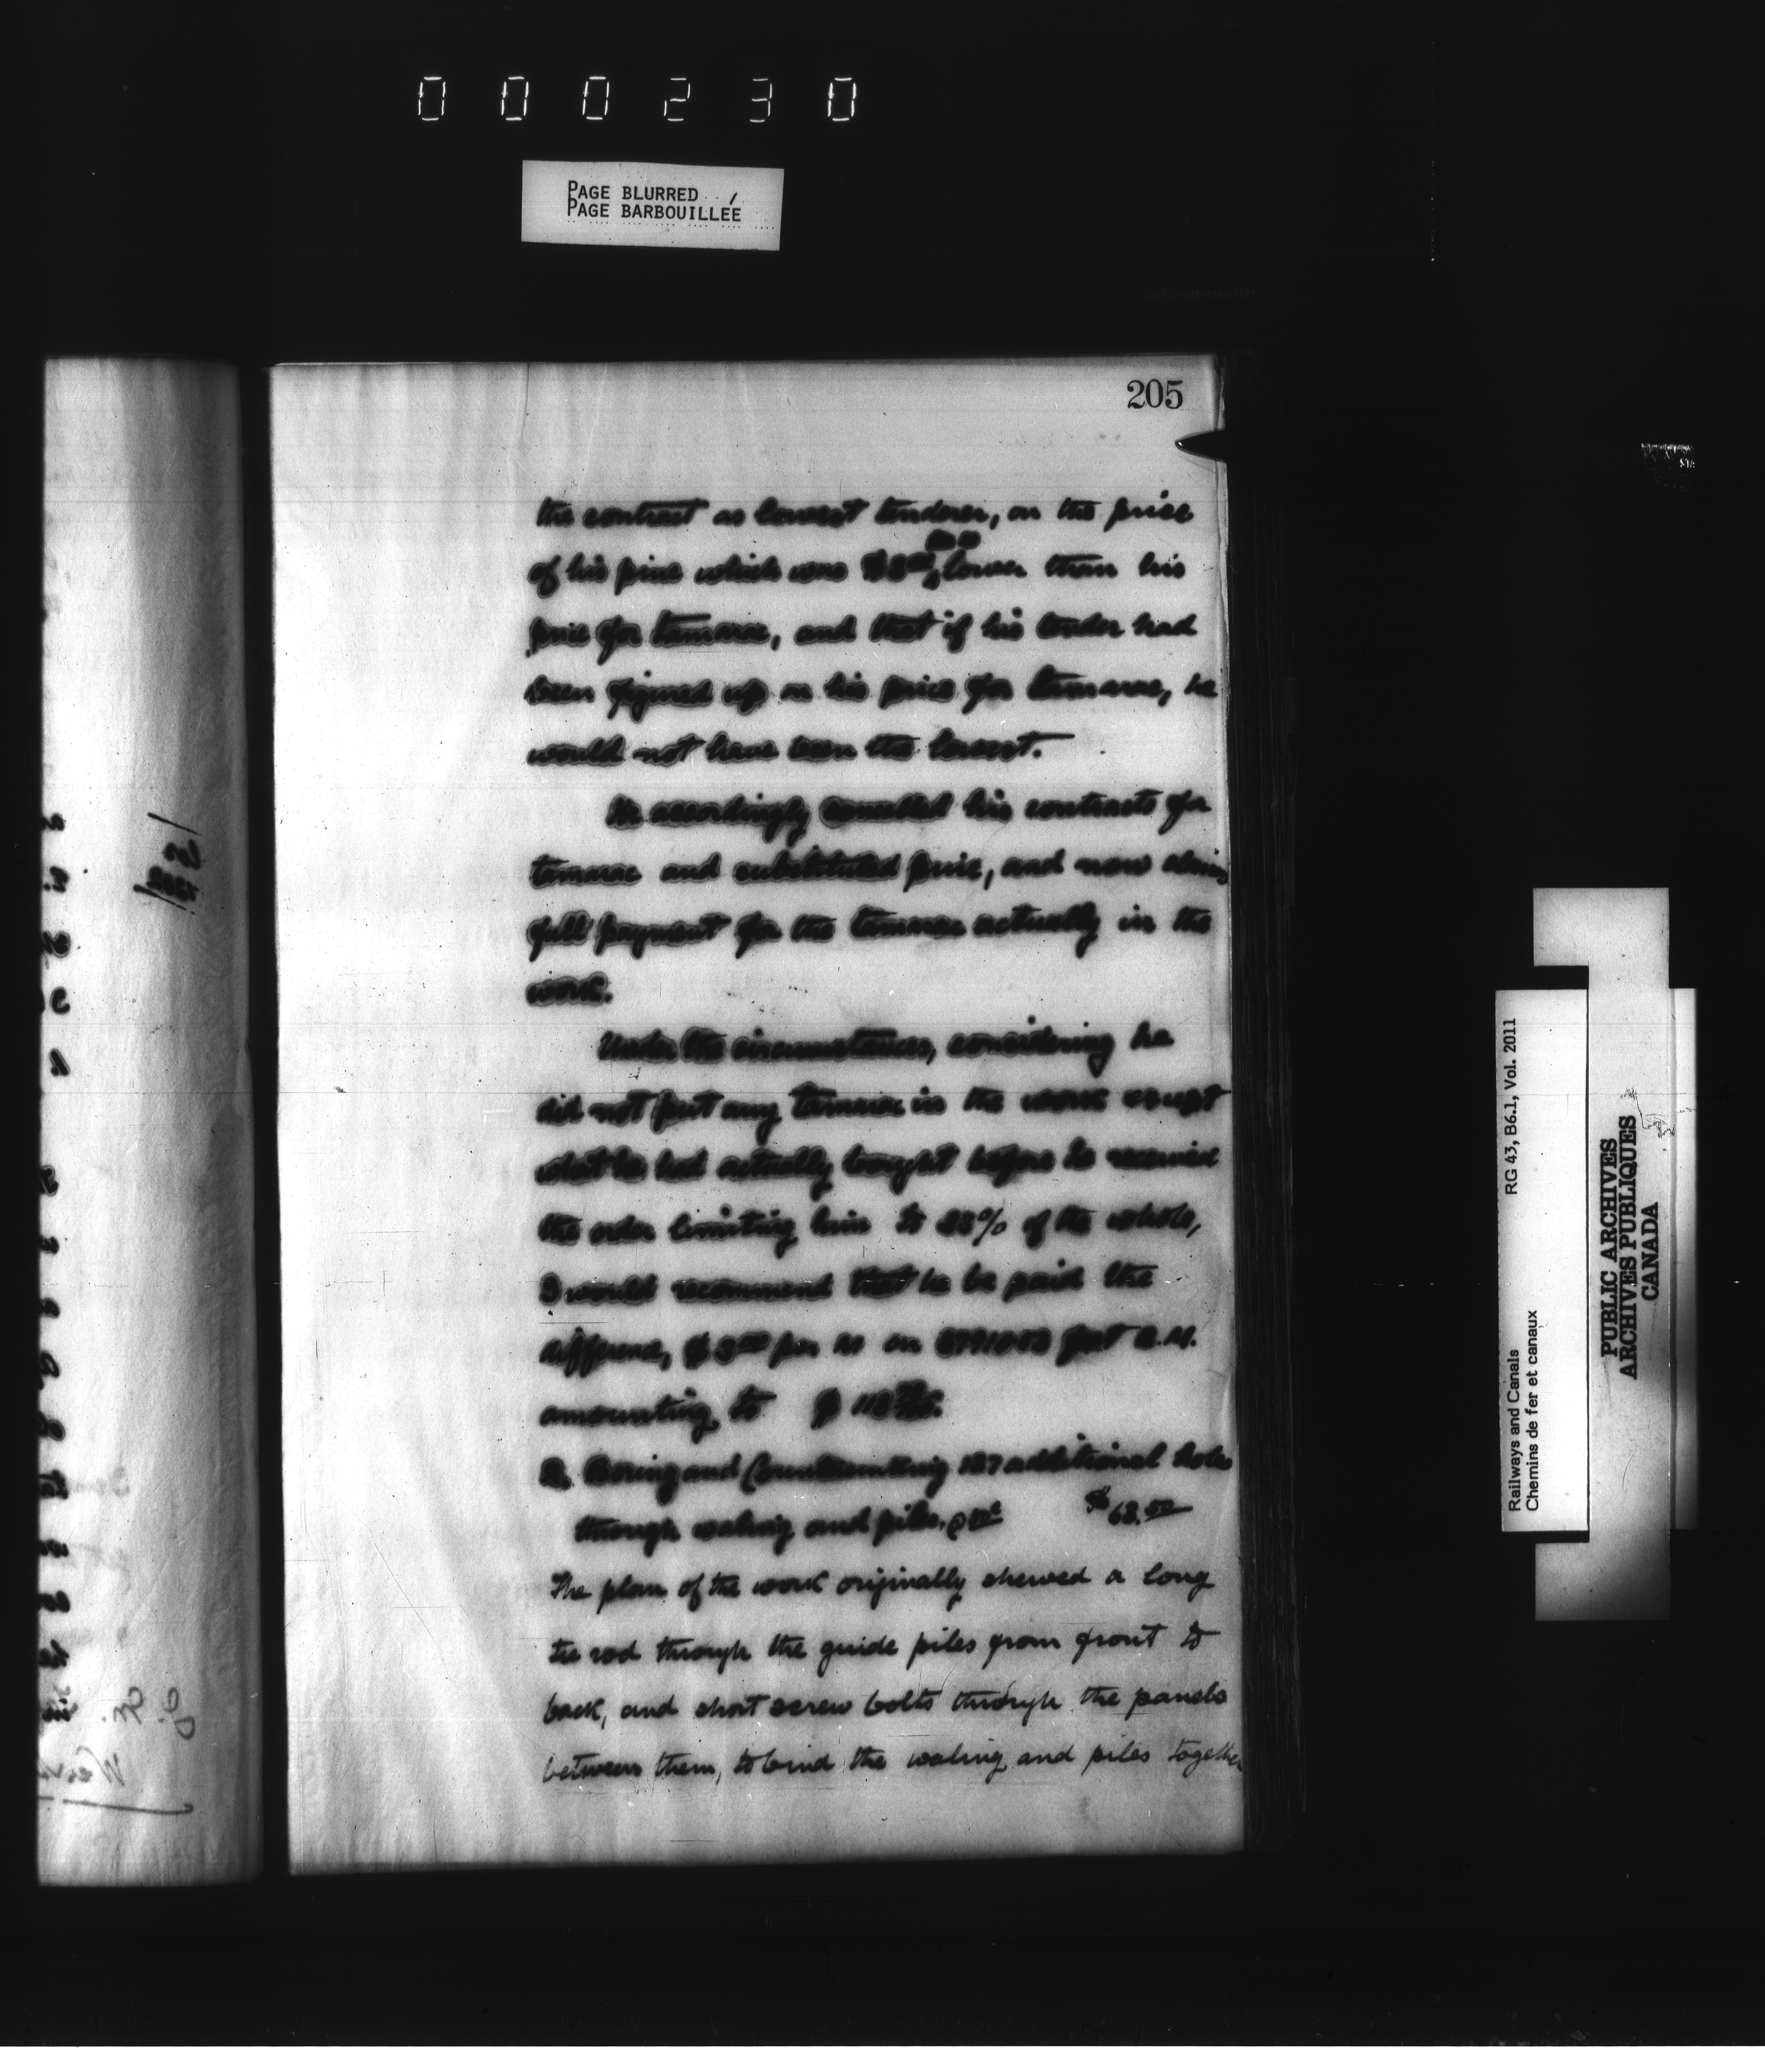 000230
PAGE BLURRED
PAGE BARBOUILLÉE
205
the contract as lowest tenderer, on the price
of his pine which was lower than his
price for tamarac, and that if his tender had
been figured up on his price for tamarac, he
would not have been the lowest.
He accordingly cancelled his contracts for
tamarac and substituted pine, and now claims
full payment for the tamarac actually in the
work.
Under the circumstances, considering he
did not put any tamarac in the work except
what he had actually bought before he received
the order limiting him to % of the whole,
I would recommend that he be paid the
difference, $ per M on feet B.M.
amounting to $
2. Boring and Countersinking 127 additional holes
through waling and piles, @ $63.50
The plan of the work originally shewed a long
tie rod through the guide piles from front to
back, and short screw bolts through the panels
between them, to bind the waling and piles together
Railways and Canals RG 43, B6.1, Vol. 2011
Chemins de fer et canaux
PUBLIC ARCHIVES
ARCHIVES PUBLIQUES
CANADA